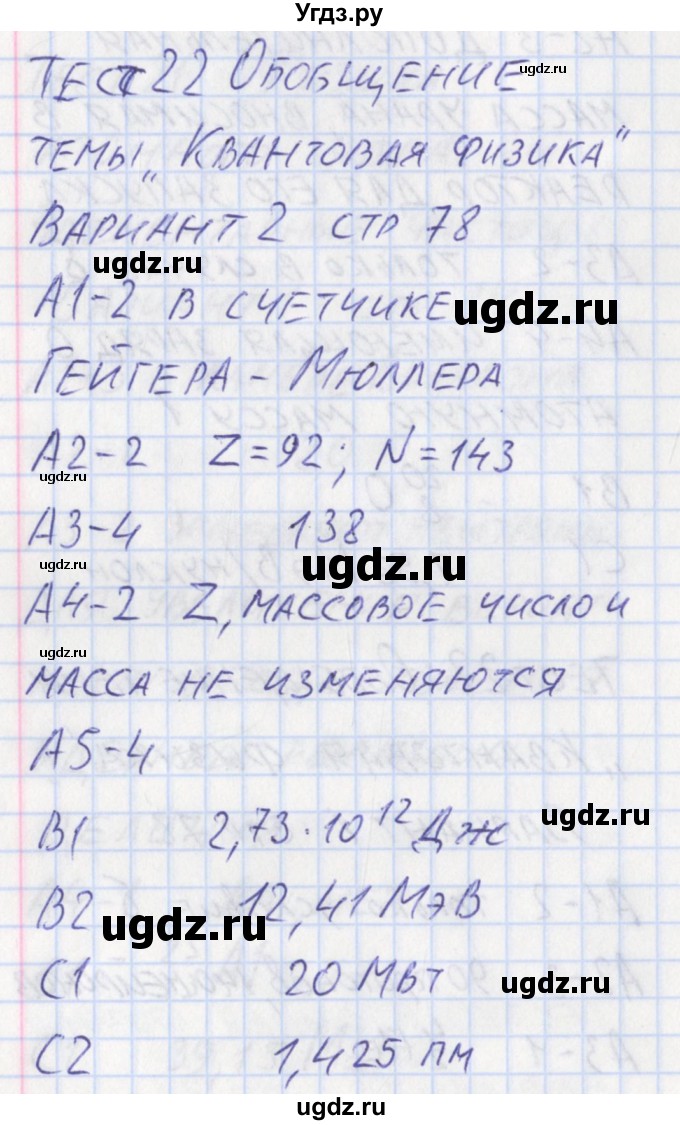 Угдз.ру
Тест 22 Обобщение
темы „Квантовая физика"
Вариант 2 стр 78
А1-2 в счетчике
Гейгера - Мюллера
А2-2 Z=92; N=143
А3-4 138
А4-2 Z, массовое число и
масса не изменяются
А5-4
В1 2,73·10¹² Дж
В2 12,41 МэВ
С1 20 МВт
С2 1,425 пм
ugdz.ru
ugdz.ru
ugdz.ru
ugdz.ru
ugdz.ru
ugdz.ru
ugdz.ru
ugdz.ru
ugdz.ru
ugdz.ru
ugdz.ru
ugdz.ru